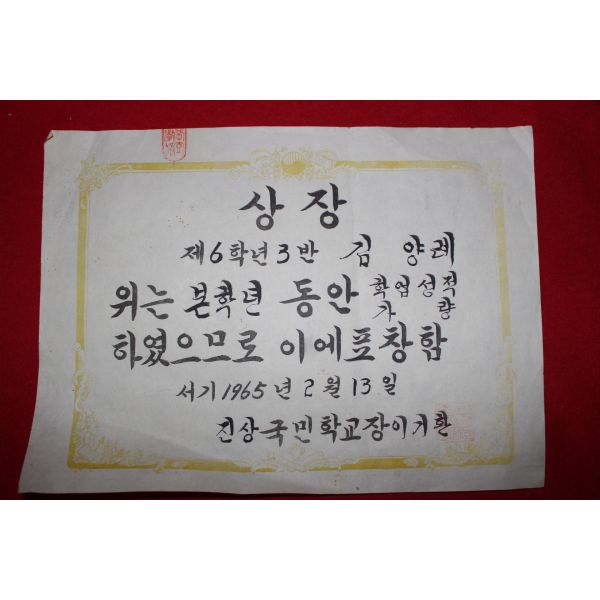 상장
제6학년3반 김양례
위는 본학년 동안 학업성적
가량
하였으므로 이에표창함
서기1965년2월13일
진상국민학교장이기환